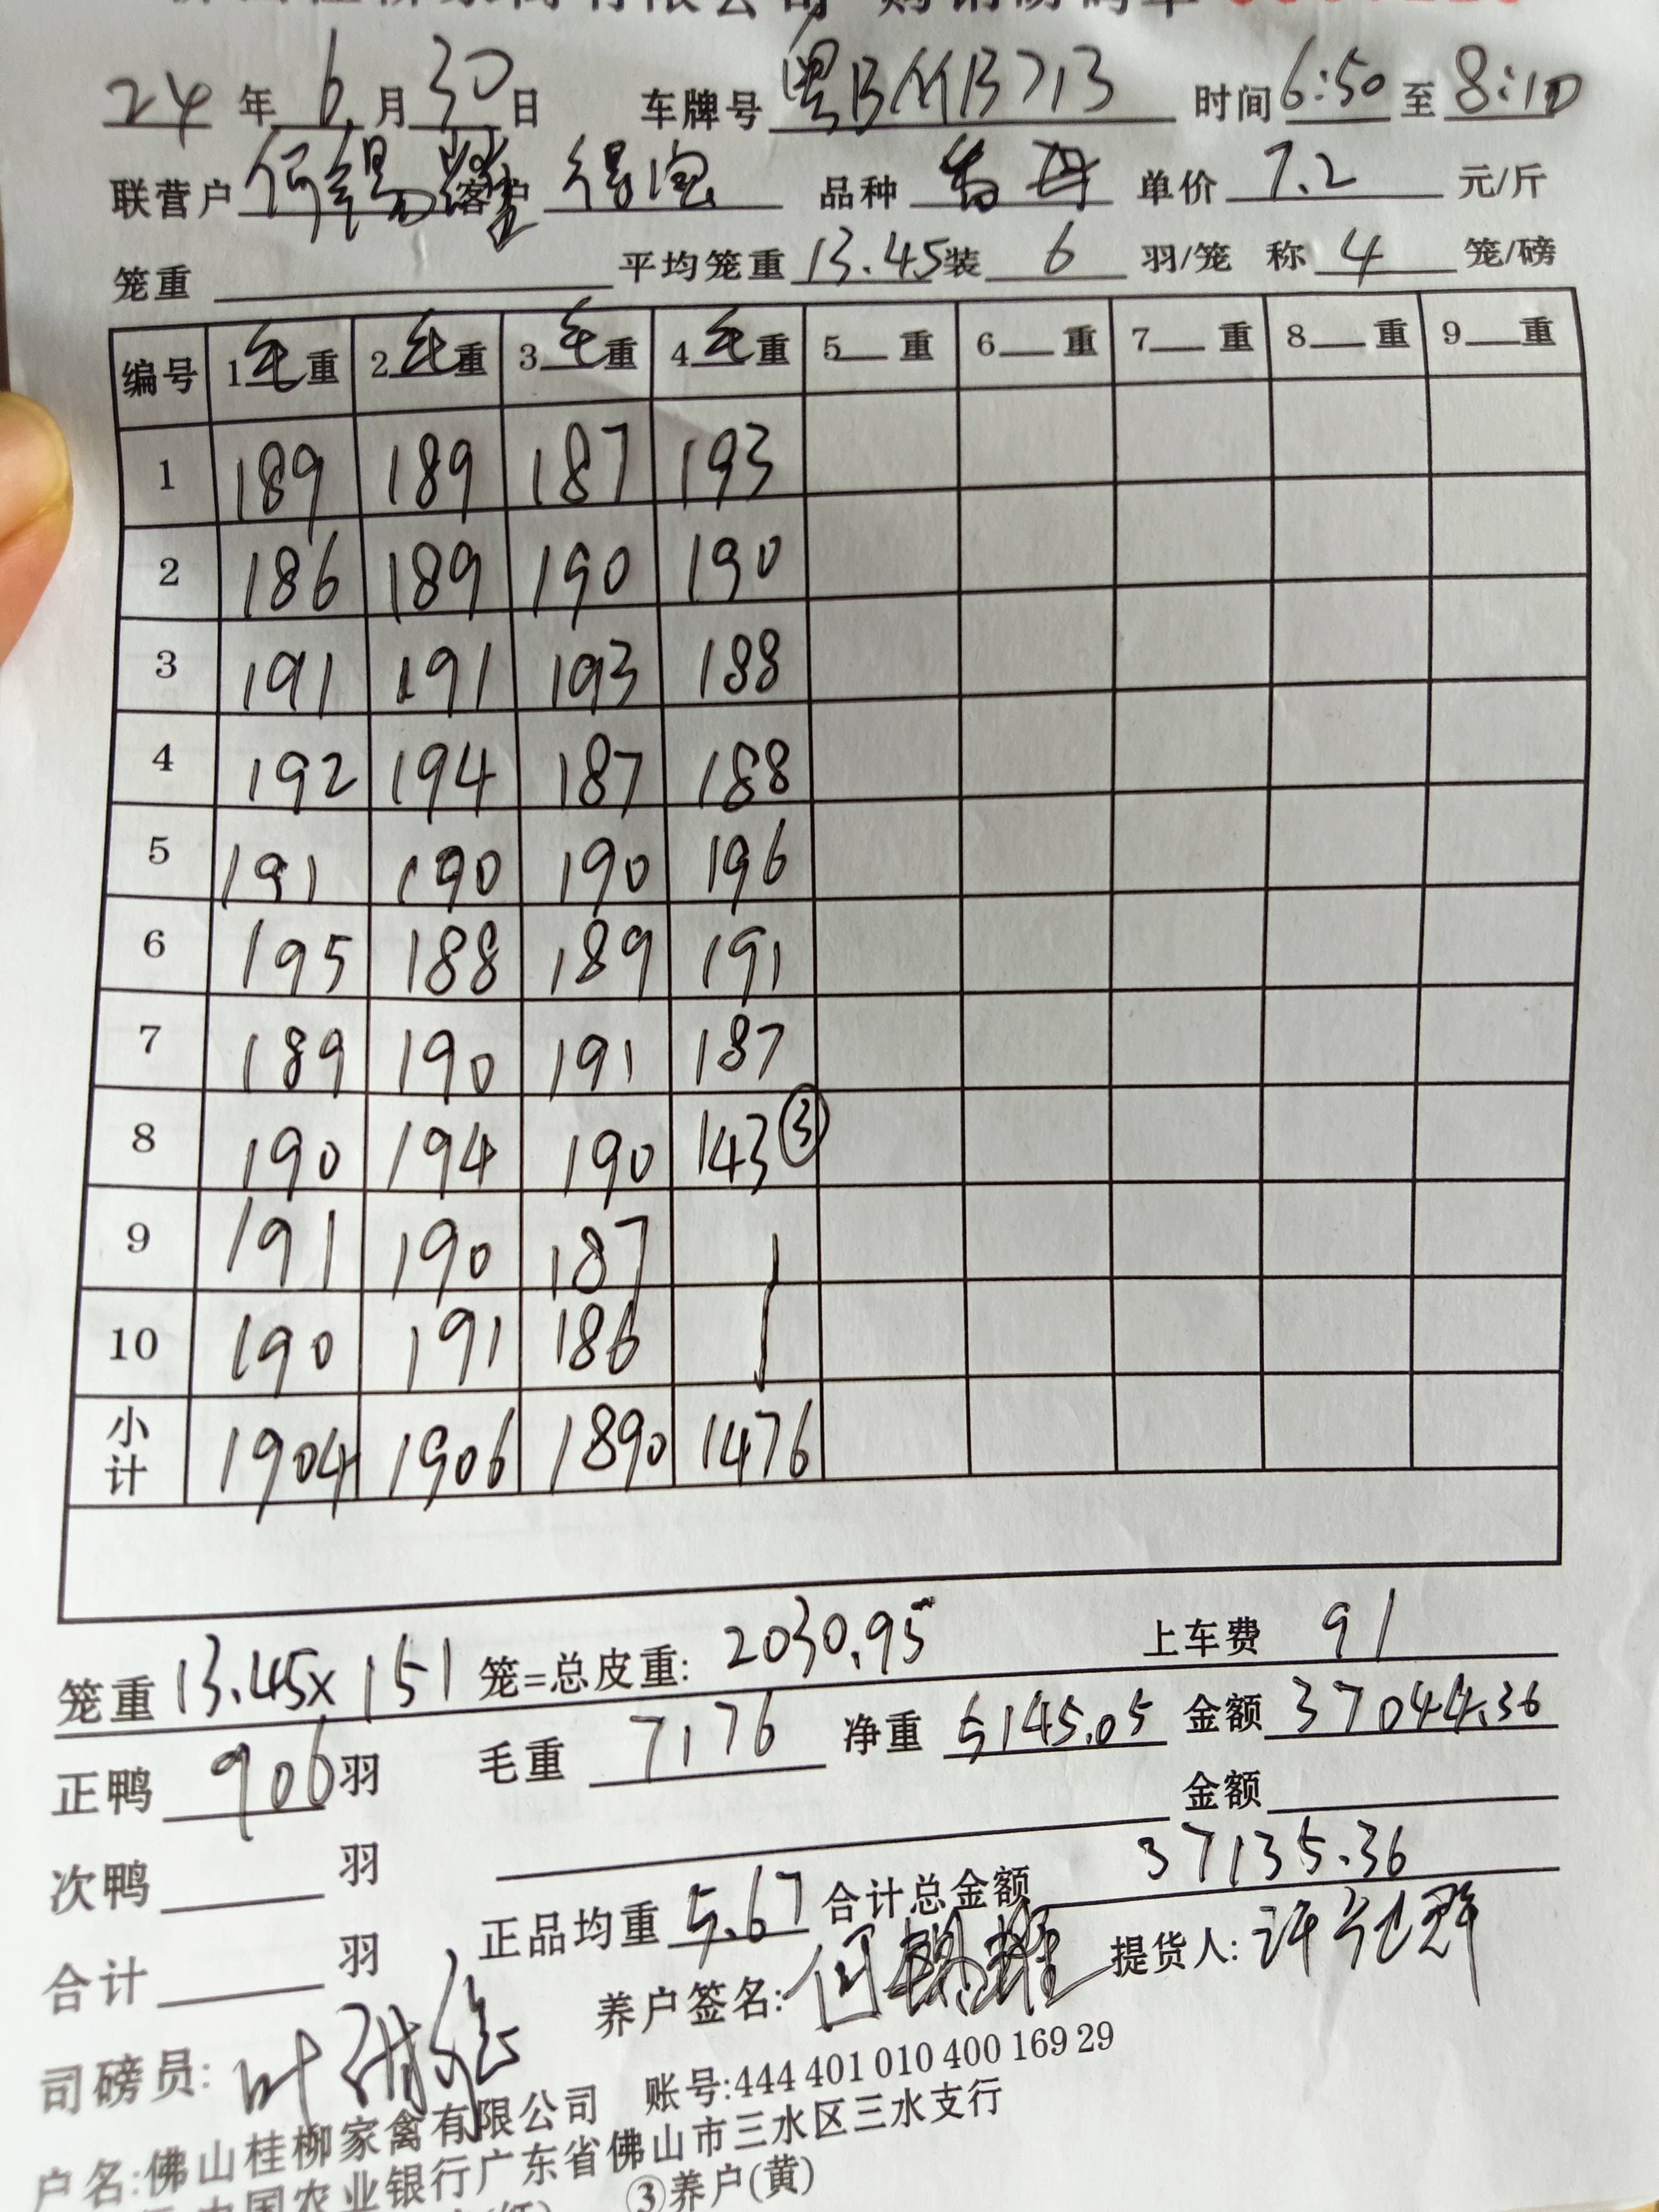 佛山桂柳家禽有限公司 购销磅码单
24年6月30日 车牌号 粤B 时间6:50至8:10
联营户 何锡 客户 得 品种 单价7.2元/斤
笼重 平均笼重13.45装6羽/笼 称4笼/磅
编号 1毛重 2毛重 3毛重 4毛重 5 重 6 重 7 重 8 重 9 重
1 189 189 187 193
2 186 189 190 190
3 191 191 193 188
4 192 194 187 188
5 191 190 190 196
6 195 188 189 191
7 189 190 191 187
8 190 194 190 143③
9 191 190 187
10 190 191 186
小计 1904 1906 1890 1476
笼重13.45×151笼=总皮重:2030.95 上车费 91
正鸭906羽 毛重7176 净重5145.05 金额37044.36
次鸭 羽 金额
合计 羽 正品均重5.67 合计总金额37135.36
司磅员:叶 养户签名:何 提货人:许
户名:佛山桂柳家禽有限公司 账号:444 401 010 400 169 29
中国农业银行广东省佛山市三水区三水支行
③养户(黄)